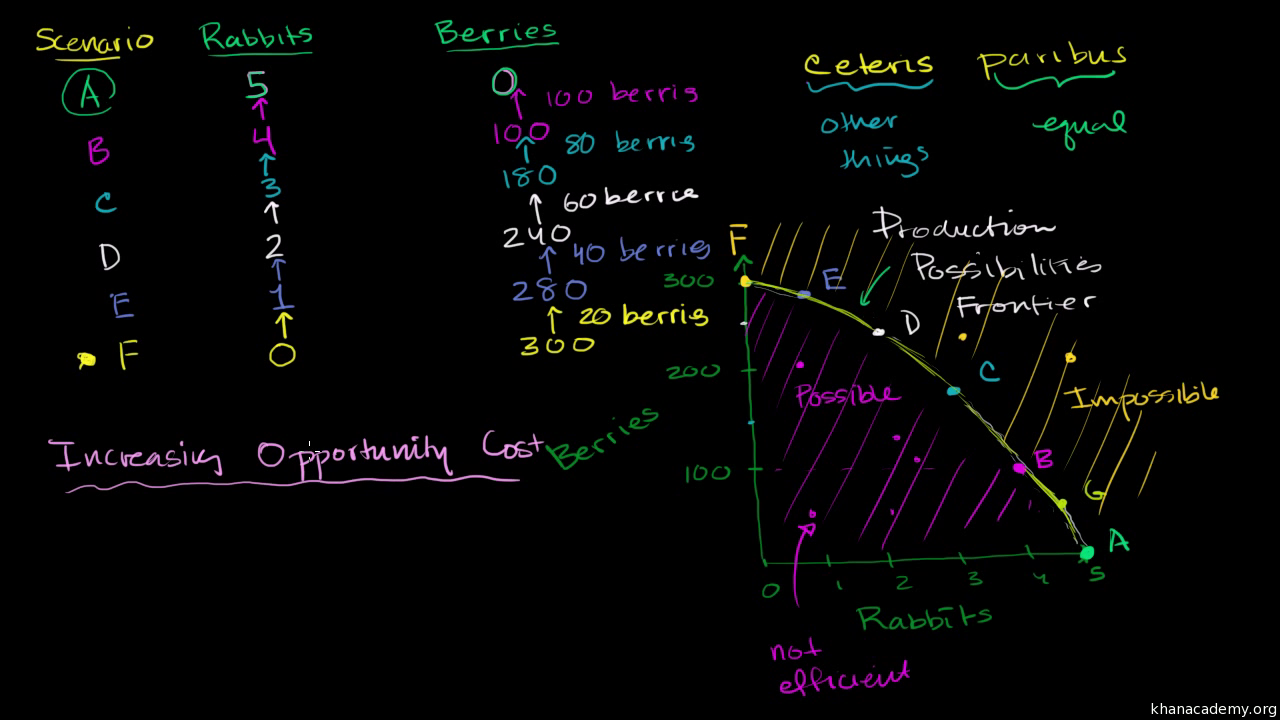 Scenario Rabbits Berries
A 5 0
100 berris
B 4 100
80 berris
C 3 180
60 berrie
D 2 240
40 berries
E 1 280
20 berris
F 0 300
Increasing Opportunity Cost
Ceteris paribus
other equal
things
Production
Possibilities
Frontier
F
300
E
D
200
C
Possible
Impossible
Berries
100
B
G
A
0 1 2 3 4 5
Rabbits
not
efficient
khanacademy.org